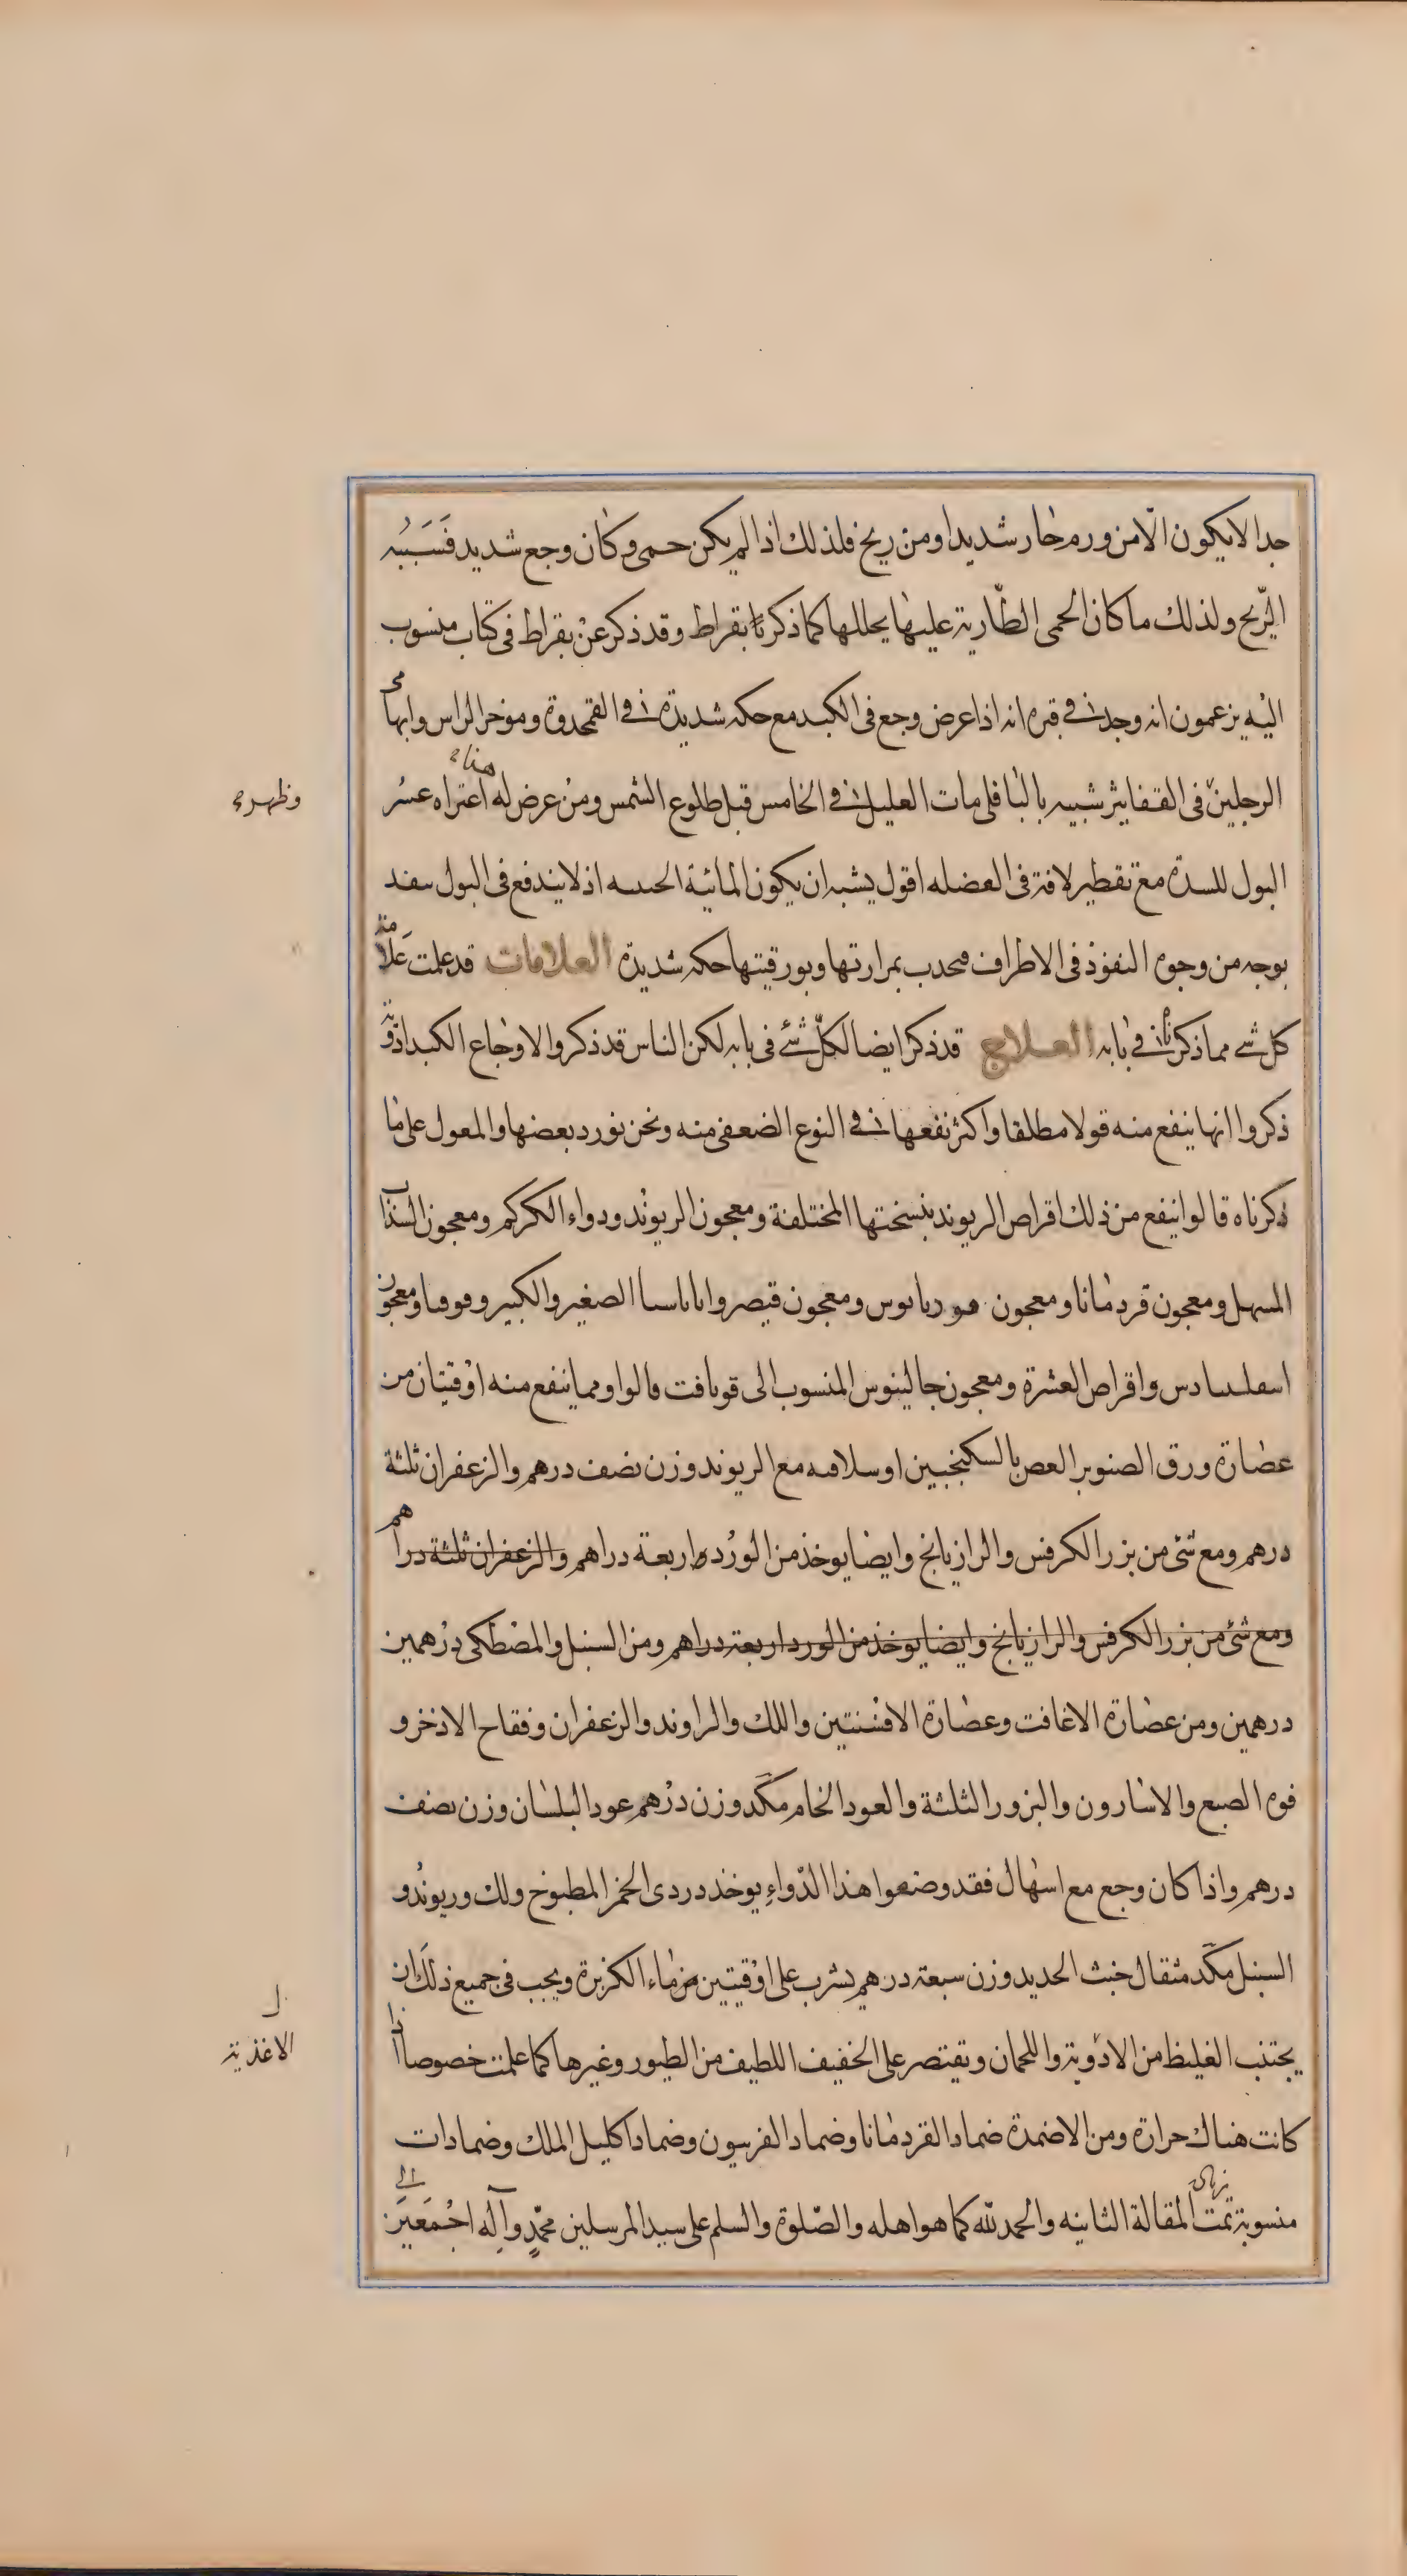 جدا لا يكون الّا من ورم حار شديد او من ريح فلذلك اذا لم يكن حمى وكان وجع شديد فَسَبَبُه
الرّيح ولذلك ما كان الحمى الطّارية عليها يحللها كما ذكرناه بقراط وقد ذكر عن بقراط فى كتاب منسوب
اليه يزعمون انه وجد فى قبره انه اذا عرض وجع فى الكبد مع حكه شديدة فى القمحدوة وموخر الراس وابهامى
الرجلين فى القفا بثر شبيه بالباقلى مات العليل فى الخامس قبل طلوع الشمس ومن عرض له هذا اعتراه عسر
وظهر
البول للسدة مع تقطير لافة فى العضله اقول يشبه ان يكون المائية الحىىىه اذ لا يندفع فى البول سفد
بوجه من وجوه النفوذ فى الاطراف فىحدب بمرارتها وبورقيتها حكه شديدة العلامات قد علمت علامة
كل شى مما ذكرناه فى بابه العلاج قد ذكر ايضا لكلّ شئ فى بابه لكن الناس قد ذكروا لاوجاع الكبد ادوية
ذكروا انها ينفع منه قولا مطلقا واكثر نفعها فى النوع الضعفى منه ونحن نورد بعضها والمعول على ما
ذكرناه قالوا ينفع من ذلك اقراص الريوند بنسختها المختلفة ومعجون الريوند ودواء الكركم ومعجون السذاب
المسهل ومعجون قردمانا ومعجون ومعجون قيصر واىاىاسىا الصغير والكبير وفوفىا ومعجون
واقراص العشرة ومعجون جالينوس المنسوب الى قوىافت قالوا ومما ينفع منه اوقيتان من
عصارة ورق الصنوبر العص بالسكنجبين او سلاقىه مع الريوند وزن نصف درهم والزعفران ثلثة
درهم ومع شئ من بزر الكرفس والرازيانج وايضا يوخذ من الورد اربعة دراهم والزعفران ثلثة دراهم
ومع شئ من بزر الكرفس والرازيانج وايضا يوخذ من الورد اربعة دراهم ومن السنبل والمصطكى درهمين
درهمين ومن عصارة الاغافت وعصارة الافسنتين واللك والراوند والزعفران وفقاح الاذخر و
فوه الصبع والاسارون والبزور الثلثة والعود الخام مكّد وزن درهم عود البلسان وزن نصف
درهم واذا كان وجع مع اسهال فقد وضعوا هذا الدّواءِ يوخذ دردى الخمر المطبوخ ولك وريوند و
السنبل مكّد مثقال خبث الحديد وزن سبعة درهم يشرب على اوقيتين من ماء الكزبرة ويجب فى جميع ذلك ان
يجتنب الغليظ من الادوية واللحمان وتقتصر على الخفيف اللطيف من الطيور وغيرها كما علمت خصوصا اذا
الاغذية
كانت هناك حرارة ومن الاضمدة ضماد القردمانا وضماد الفرسون وضماد اكليل الملك وضمادات
منسوبة الى تمت المقالة الثانيه والحمد لله كما هو اهله والصّلوة والسلم على سيد المرسلين محمّدٍ وآلِه اجْمَعين